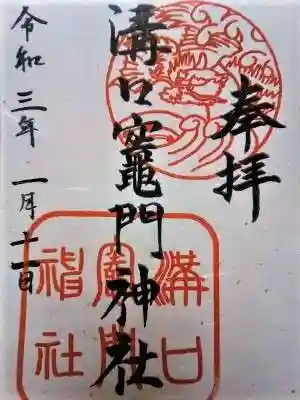 奉拝
溝口竈門神社
令和三年一月十一日
溝口
竈門
神社